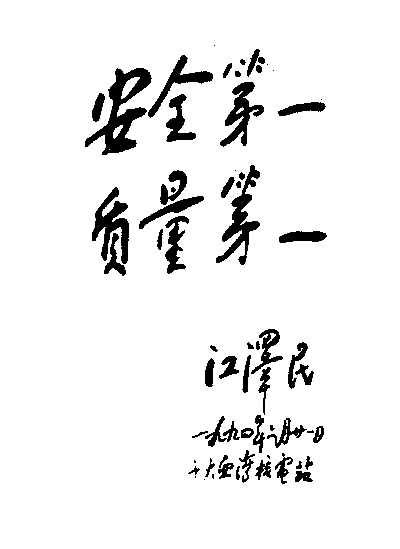 安全第一
质量第一
江澤民
一九九〇年二月廿一日
于大亚湾核電站